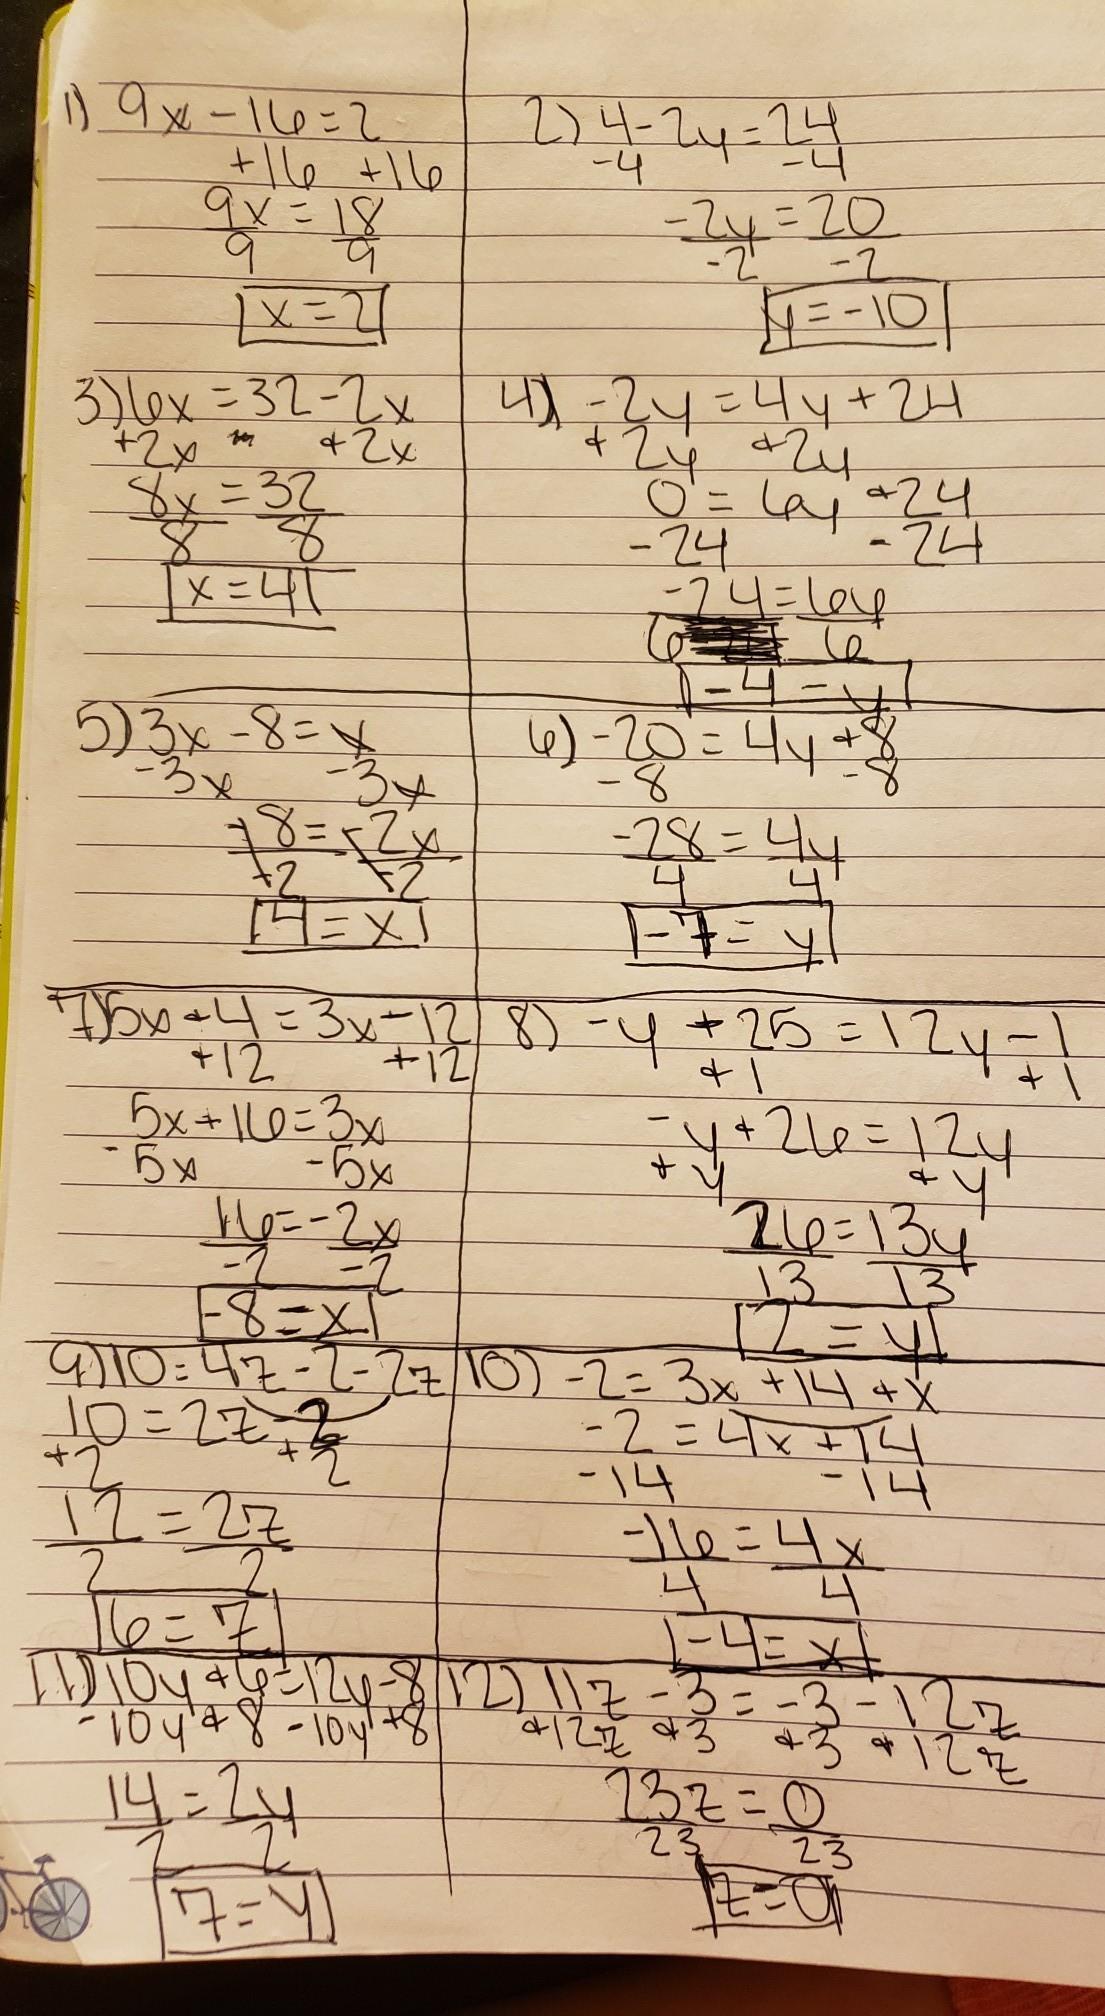 1) 9x - 16 = 2
+16 +16
9x = 18
9 9
x = 2
2) 4 - 2y = 24
-4 -4
-2y = 20
-2 -2
y = -10
3) 6x = 32 - 2x
+2x +2x
8x = 32
8 8
x = 4
4) -2y = 4y + 24
+2y +2y
0 = 6y + 24
-24 -24
-24 = 6y
6 6
-4 = y
5) 3x - 8 = x
-3x -3x
-8 = -2x
-2 -2
4 = x
6) -20 = 4y + 8
-8 -8
-28 = 4y
4 4
-7 = y
7) 5x + 4 = 3x - 12
+12 +12
5x + 16 = 3x
-5x -5x
16 = -2x
-2 -2
-8 = x
8) -y + 25 = 12y - 1
+1 +1
-y + 26 = 12y
+y +y
26 = 13y
13 13
2 = y
9) 10 = 4z - 2 - 2z
10 = 2z - 2
+2 +2
12 = 2z
2 2
6 = z
10) -2 = 3x + 14 + x
-2 = 4x + 14
-14 -14
-16 = 4x
4 4
-4 = x
11) 10y + 6 = 12y - 8
-10y + 8 -10y + 8
14 = 2y
2 2
7 = y
12) 11z - 3 = -3 - 12z
+12z +3 +3 +12z
23z = 0
23 23
z = 0